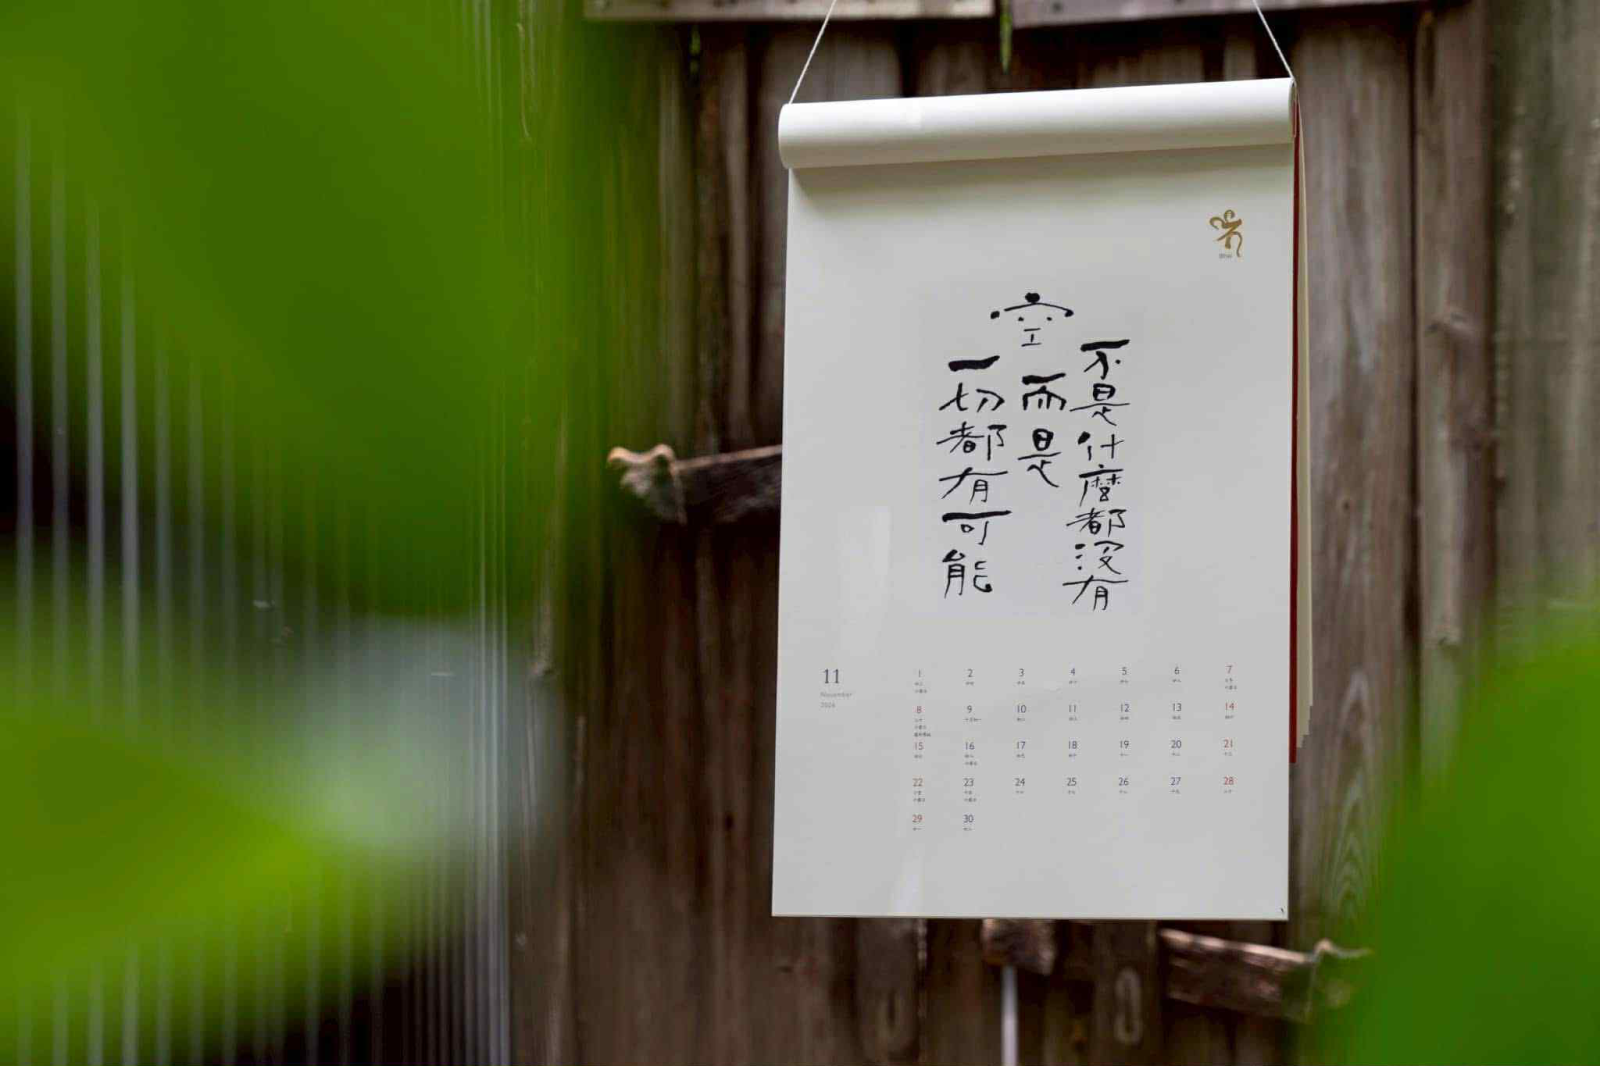 空
不是什麼都沒有
而是
一切都有可能
11
November
2026
1 2 3 4 5 6 7
8 9 10 11 12 13 14
15 16 17 18 19 20 21
22 23 24 25 26 27 28
29 30